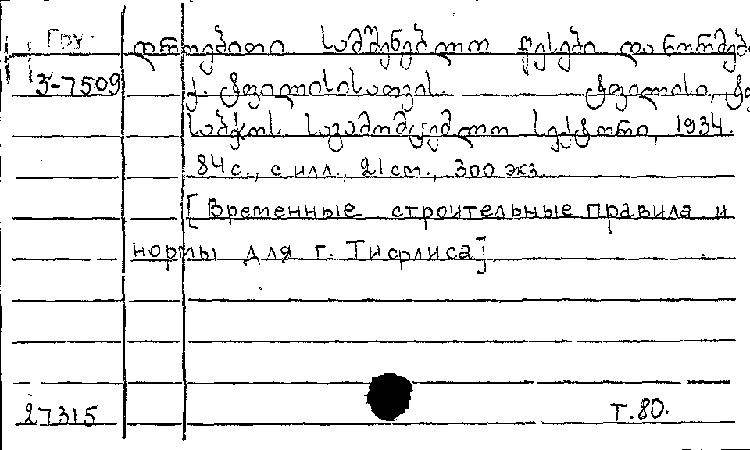 Гру.
დროებითი სამშენებლო წესები და ნორმები
3-7509 ქ. ტფილისისათვის. ტფილისი, ტფ
საბჭოს საგამომცემლო სექტორი, 1934.
84 с., с илл., 21 см., 300 экз.
[Временные строительные правила и
нормы для г. Тифлиса]
27315 Т.80.